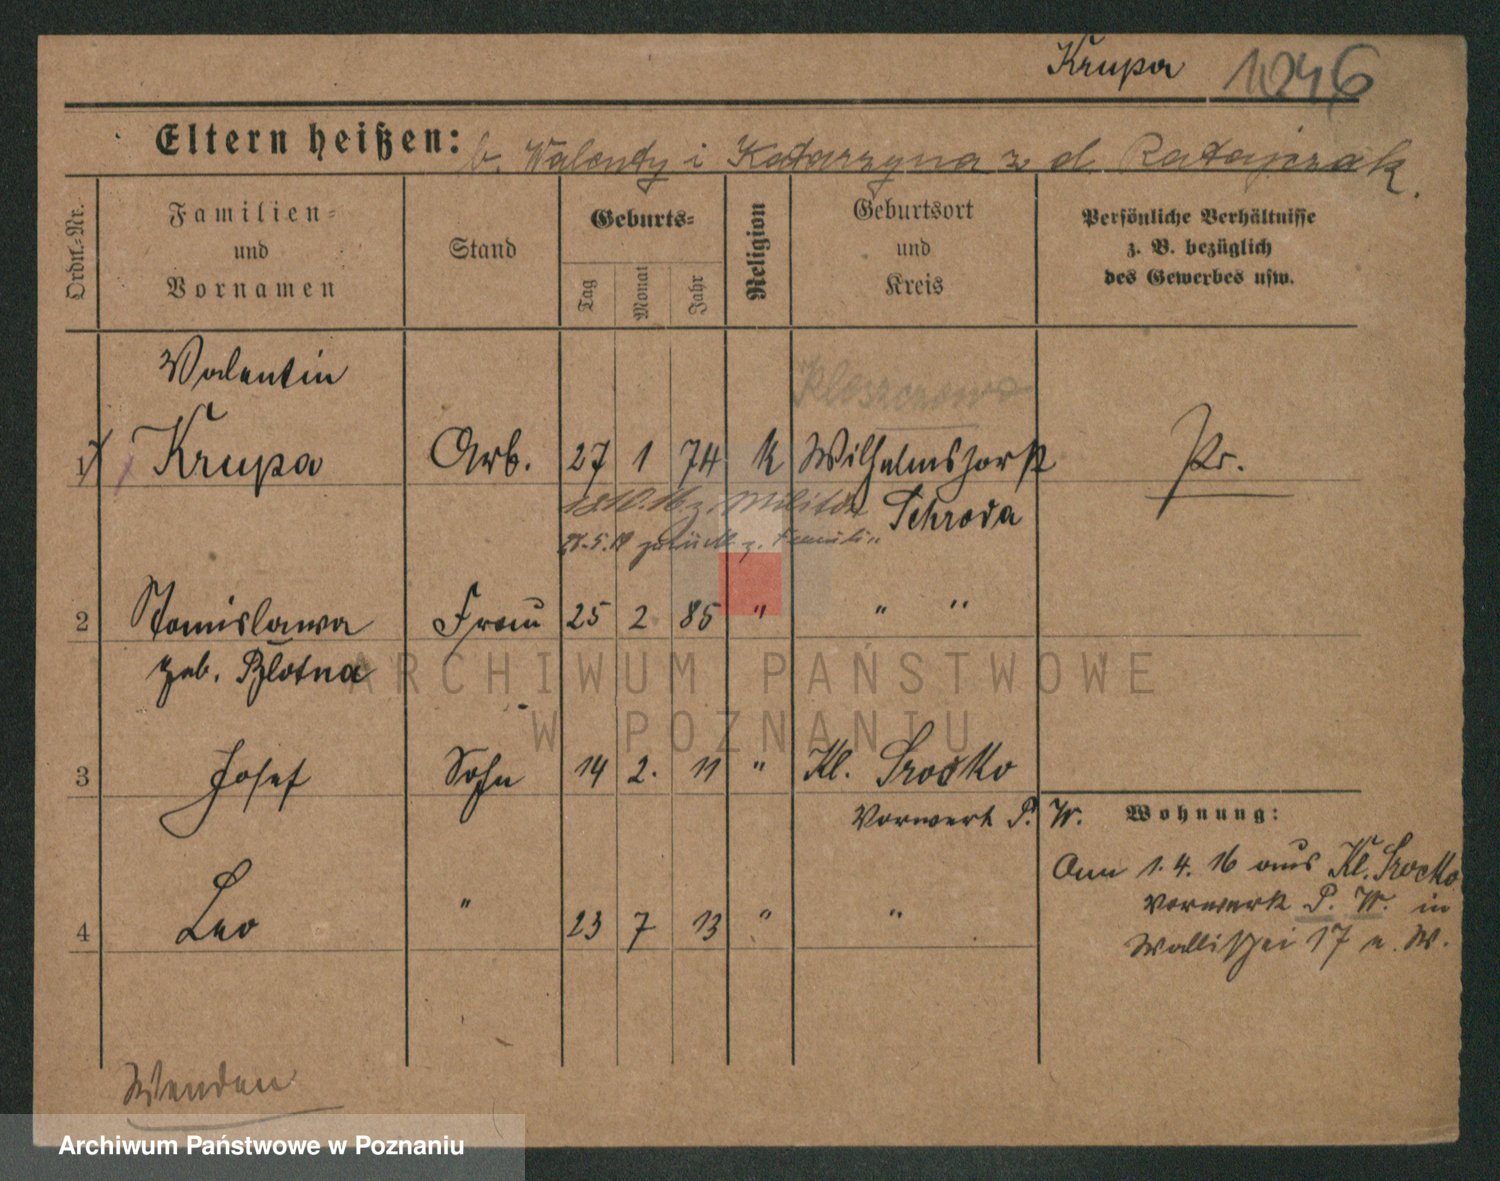 Krupa 1046
Eltern heißen: b. Walenty i Katarzyna z d. Ratajczak.
Ordn.-Nr.
Familien- und Vornamen
Stand
Geburts-
Tag
Monat
Jahr
Religion
Geburtsort und Kreis
Persönliche Verhältnisse z. B. bezüglich des Gewerbes usw.
Valentin
Kleszczewo
1 Krupa Arb. 27 1 74 k Wilhelmshorst Pr.
18.10.16 z. Militär Schroda
zurück z. Famili
2 Stanislawa Frau 25 2 85 " " "
geb. Błotna
3 Josef Sohn 14 2. 11 " Kl. Srocko
Vorwerk P. W.
Wohnung:
Am 1.4.16 aus Kl. Srocko
Vorwerk P. W. in
Wallischei 17 n. W.
4 Leo " 23 7 13 " "
Wenden
ARCHIWUM PAŃSTWOWE
W POZNANIU
Archiwum Państwowe w Poznaniu